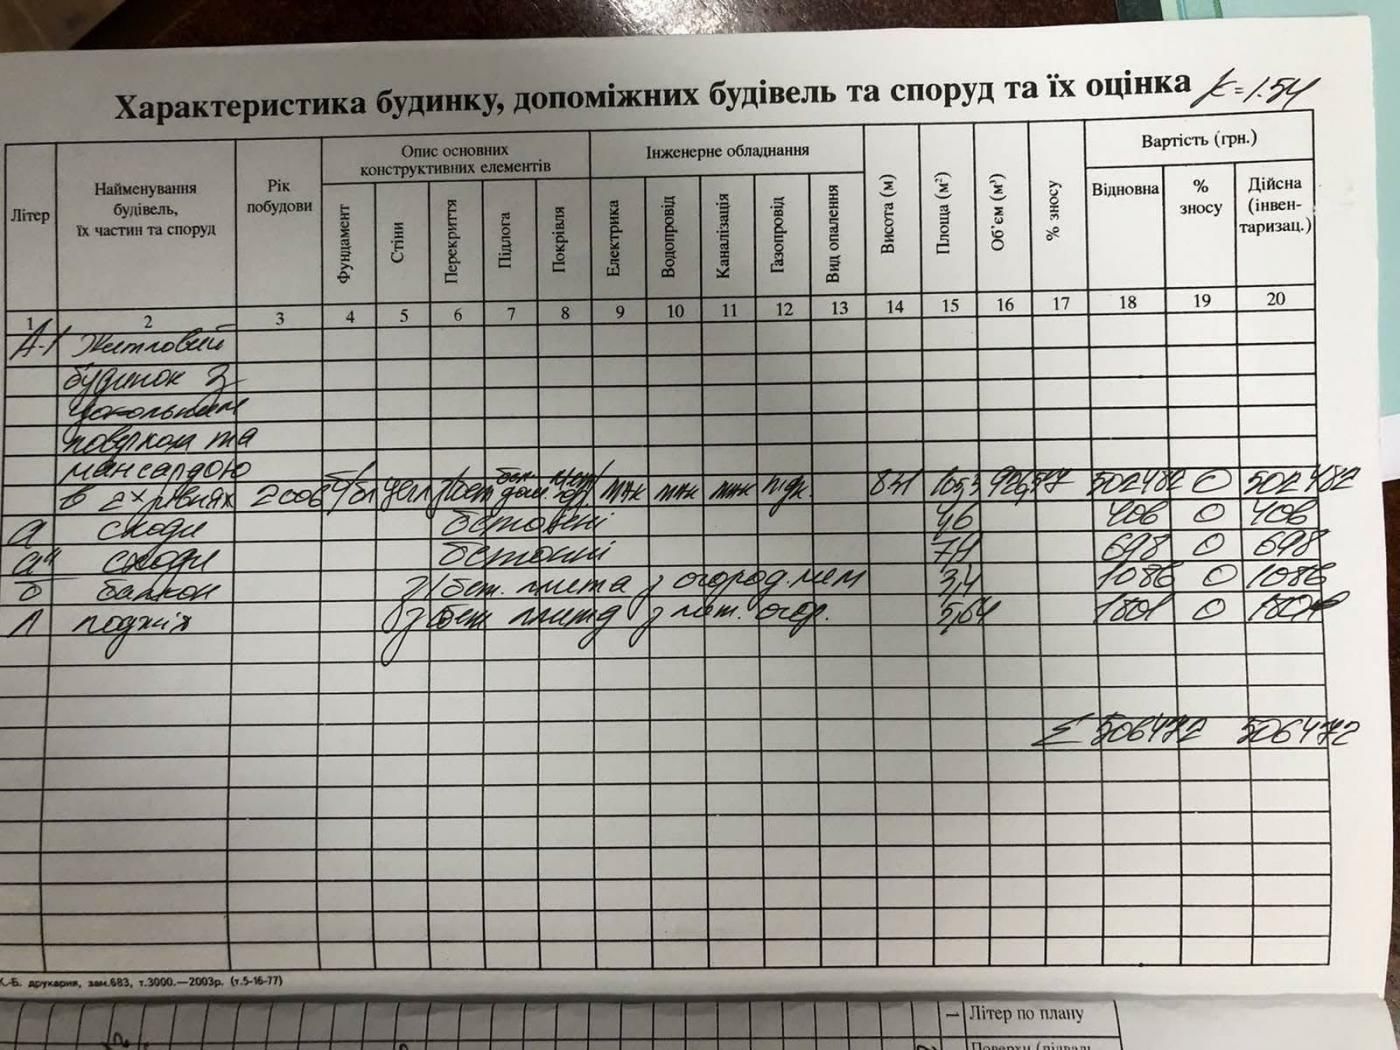 Характеристика будинку, допоміжних будівель та споруд та їх оцінка k=1.54
Літер
Найменування
будівель,
їх частин та споруд
Рік
побудови
Опис основних
конструктивних елементів
Фундамент
Стіни
Перекриття
Підлога
Покрівля
Інженерне обладнання
Електрика
Водопровід
Каналізація
Газопровід
Вид опалення
Висота (м)
Площа (м²)
Об'єм (м³)
% зносу
Вартість (грн.)
Відновна
%
зносу
Дійсна
(інвен-
таризац.)
1 2 3 4 5 6 7 8 9 10 11 12 13 14 15 16 17 18 19 20
А-1 Житловий
будинок з
цокольним
поверхом та
мансардою
в 2х рівнях 2006 502482 0 502482
а сходи бетонні 4,6 406 0 406
сходи бетонні 7,4 698 0 698
б балкон з/бет. плита з огород. мет 3,4 1086 0 1086
з/бет плита з мет. огор. 5,64 1801 0
Σ 506472 506472
К.-Б. друкарня, зам.683, т.3000.—2003р. (т.5-16-77)
1 Літер по плану